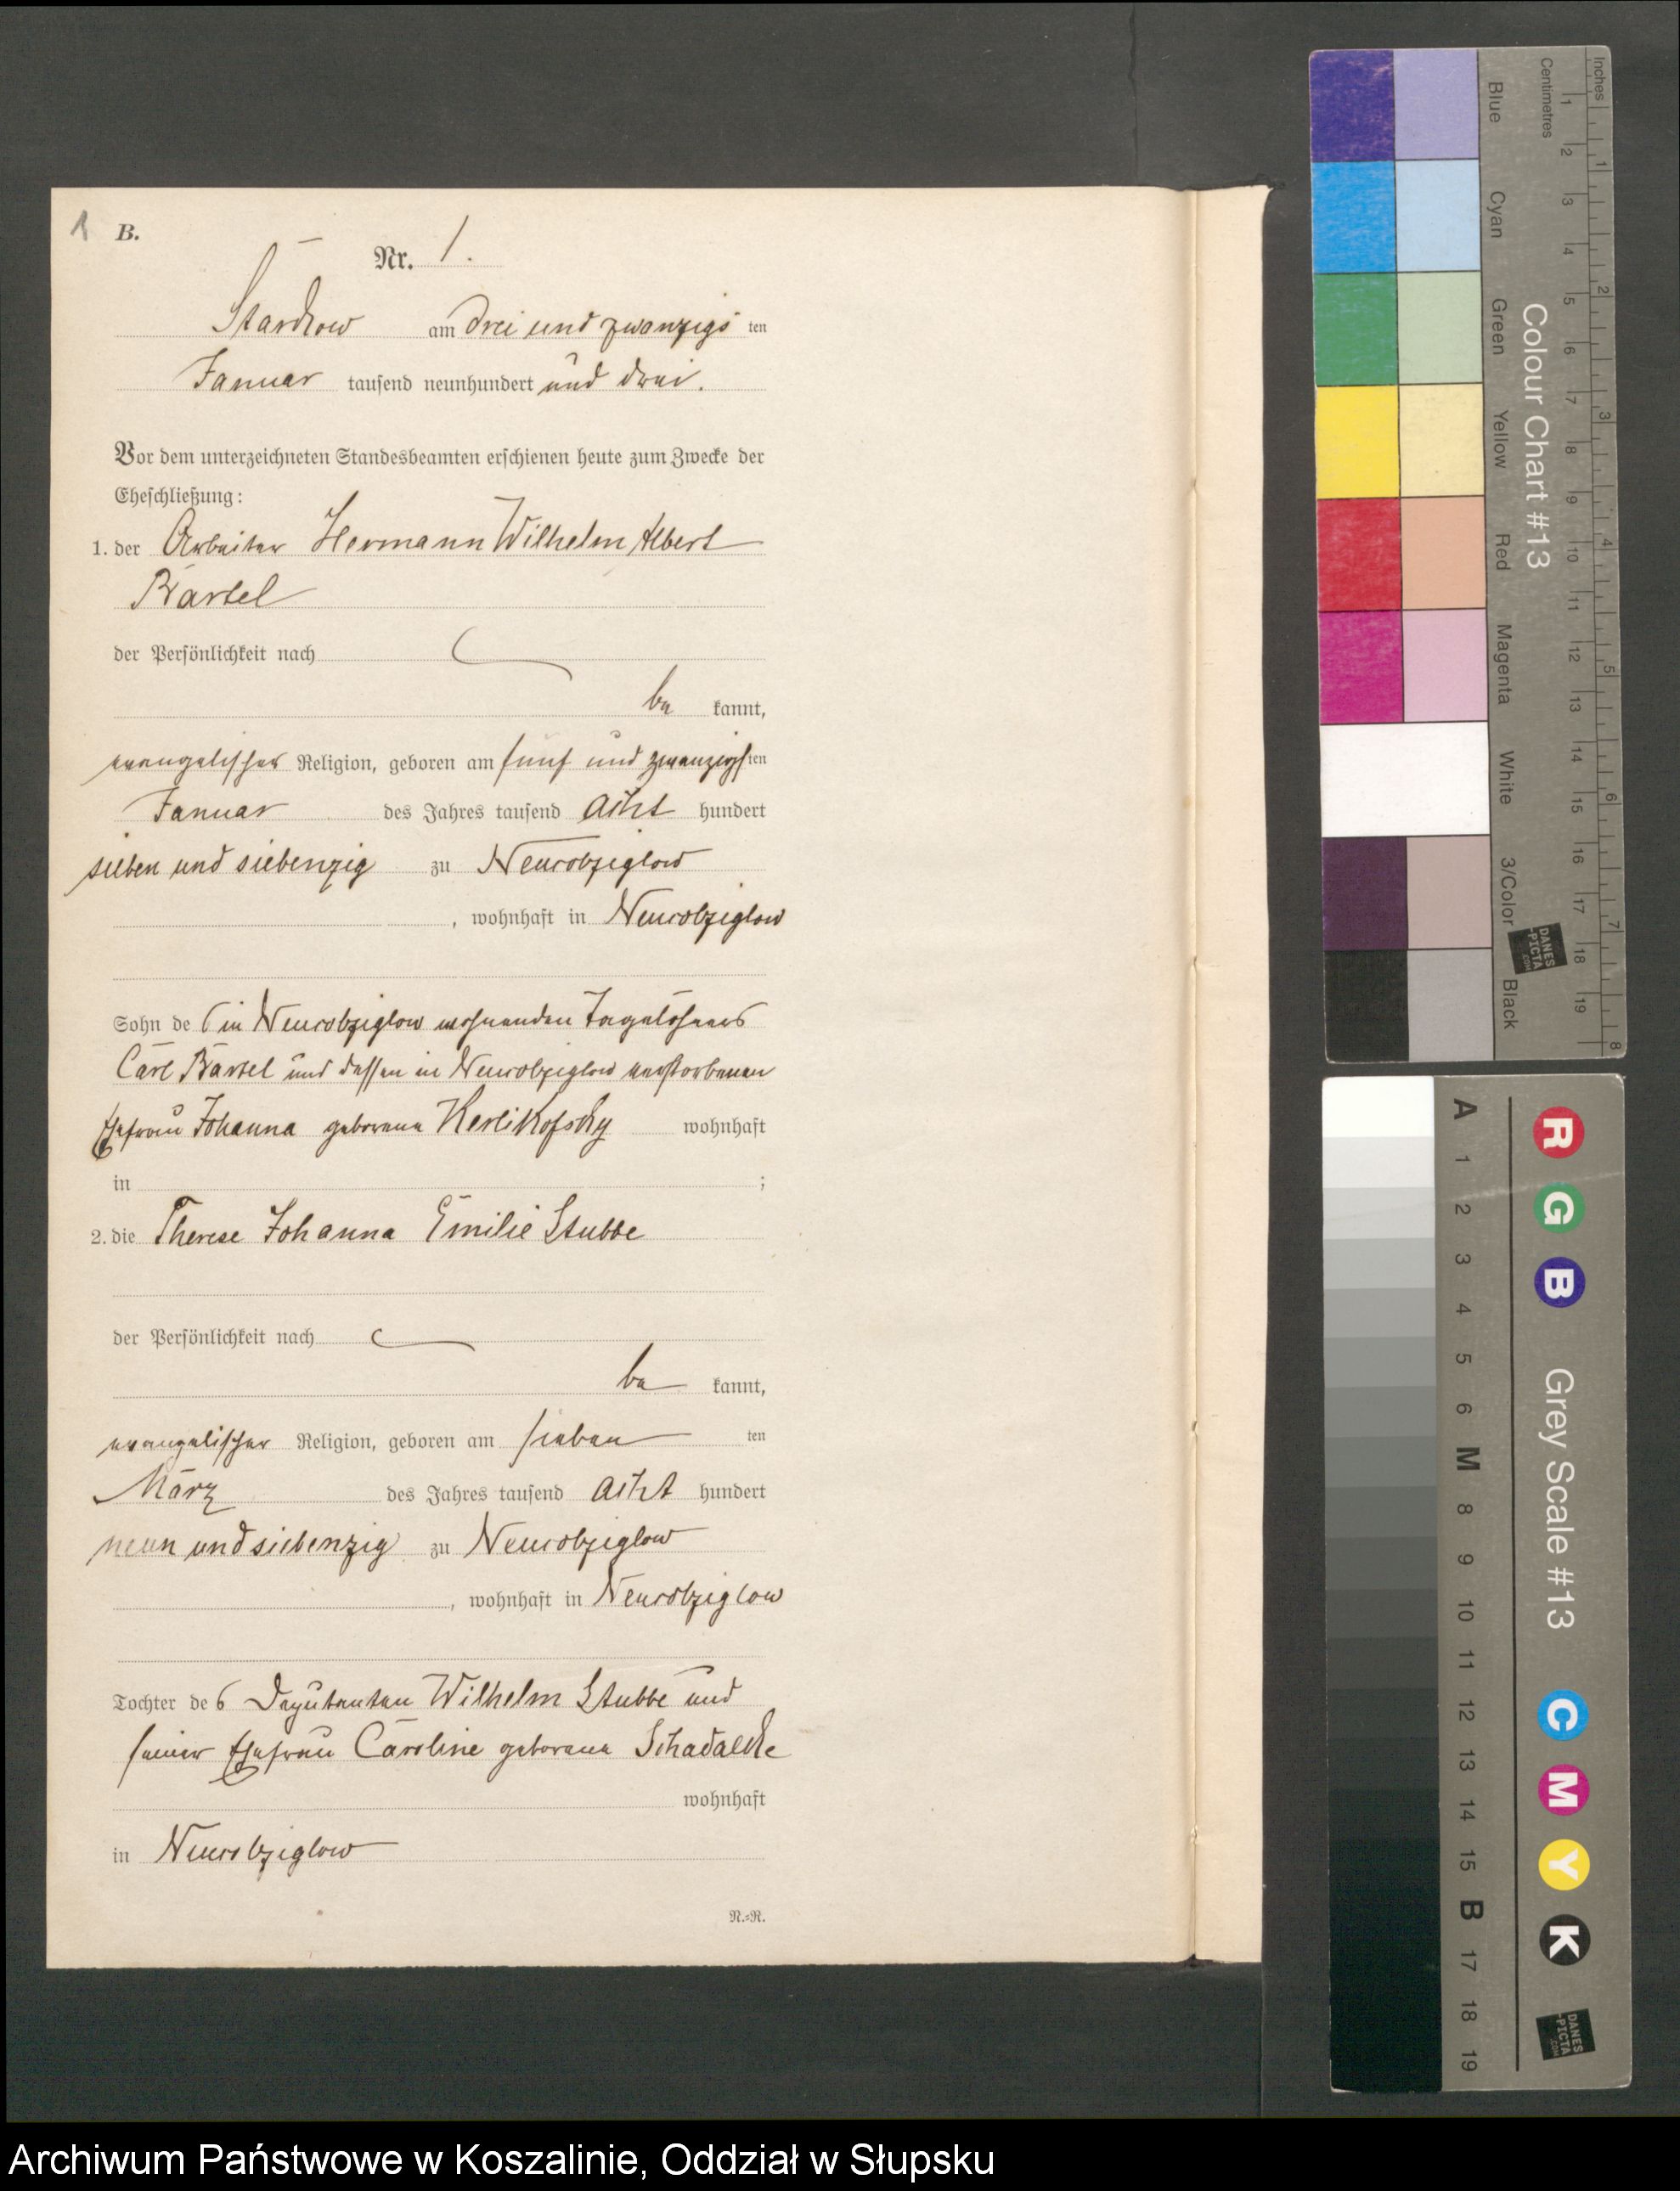 1 B.
Nr. 1.
Starckow am drei und zwanzigs ten
Januar tausend neunhundert und drei.
Vor dem unterzeichneten Standesbeamten erschienen heute zum Zwecke der
Eheschließung:
1. der Arbeiter Hermann Wilhelm Albert
Bartel
der Persönlichkeit nach
be kannt,
evangelischer Religion, geboren am fünf und zwanzigsten
Januar des Jahres tausend acht hundert
sieben und siebenzig zu Neucobziglow
, wohnhaft in Neucobziglow
Sohn des in Neucobziglow wohnenden Tagelöhners
Carl Bartel und dessen in Neucobziglow verstorbenen
Ehefrau Johanna geborene Kerlikofsky wohnhaft
in ;
2. die Therese Johanna Emilie Stubbe
der Persönlichkeit nach
be kannt,
evangelischer Religion, geboren am sieben ten
März des Jahres tausend acht hundert
neun und siebenzig zu Neucobziglow
, wohnhaft in Neucobziglow
Tochter des Deputanten Wilhelm Stubbe und
seiner Ehefrau Caroline geborene Schadalcke
wohnhaft
in Neucobziglow
N.-N.
Inches
Centimetres
1 2 3 4 5 6 7 8
1 2 3 4 5 6 7 8 9 10 11 12 13 14 15 16 17 18 19
Colour Chart #13
Blue
Cyan
Green
Yellow
Red
Magenta
White
3/Color
Black
DANES
-PICTA
.COM
A 1 2 3 4 5 6 M 8 9 10 11 12 13 14 15 B 17 18 19
R G B
Grey Scale #13
C M Y K
DANES
-PICTA
.COM
Archiwum Państwowe w Koszalinie, Oddział w Słupsku